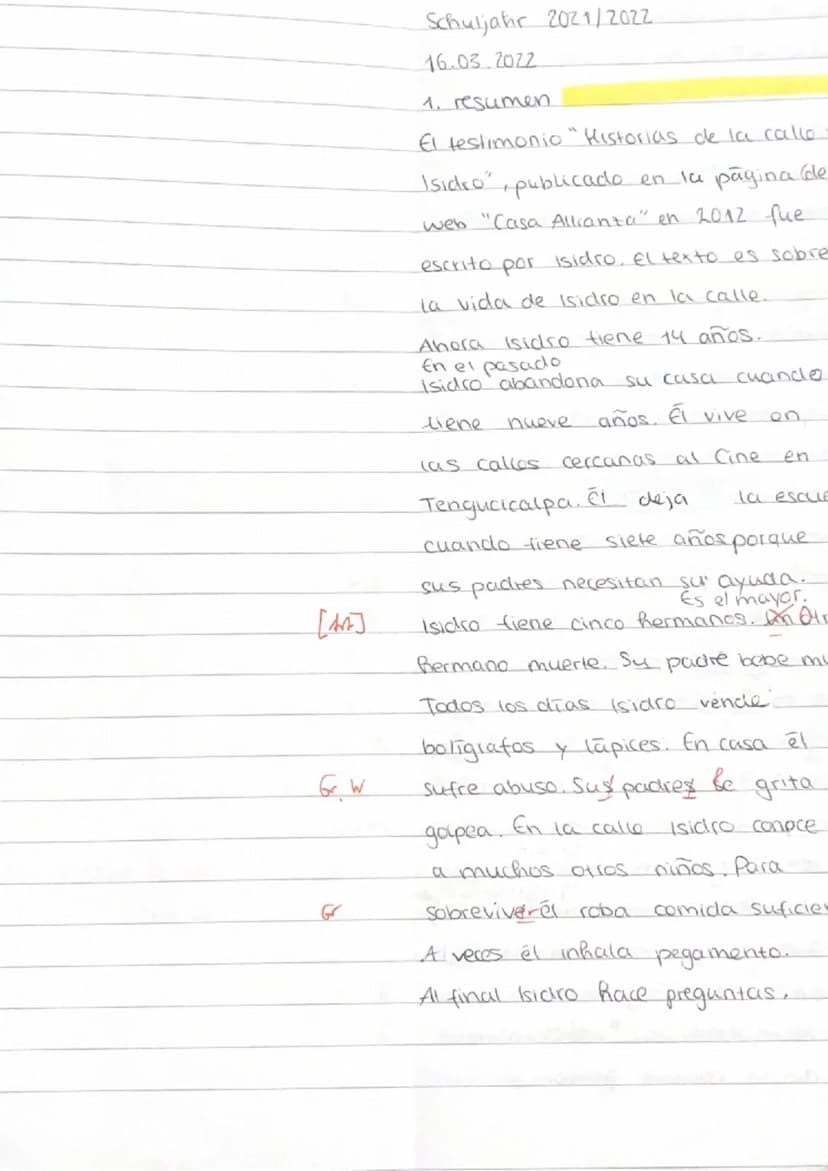 Schuljahr 2021/2022
16.03.2022
1. resumen
El testimonio "Historias de la calle:
Isidro", publicado en la página de
web "Casa Alianta" en 2012 fue
escrito por Isidro. El texto es sobre
la vida de Isidro en la calle.
Ahora Isidro tiene 14 años.
En el pasado
Isidro abandona su casa cuando
tiene nueve años. Él vive en
las calles cercanas al Cine en
Tengucicalpa. Él deja la escue
cuando tiene siete años porque
sus padres necesitan su ayuda.
Es el mayor.
[Art] Isidro tiene cinco hermanos. Un Otr
hermano muerte. Su padre bebe mu
Todos los días Isidro vende
bolígrafos y lápices. En casa él
Gr, W sufre abuso. Sus padres le grita
golpea. En la calle Isidro conoce
a muchos otros niños. Para
Gr sobreviver él roba comida suficien
A veces él inhala pegamento.
Al final Isidro hace preguntas.